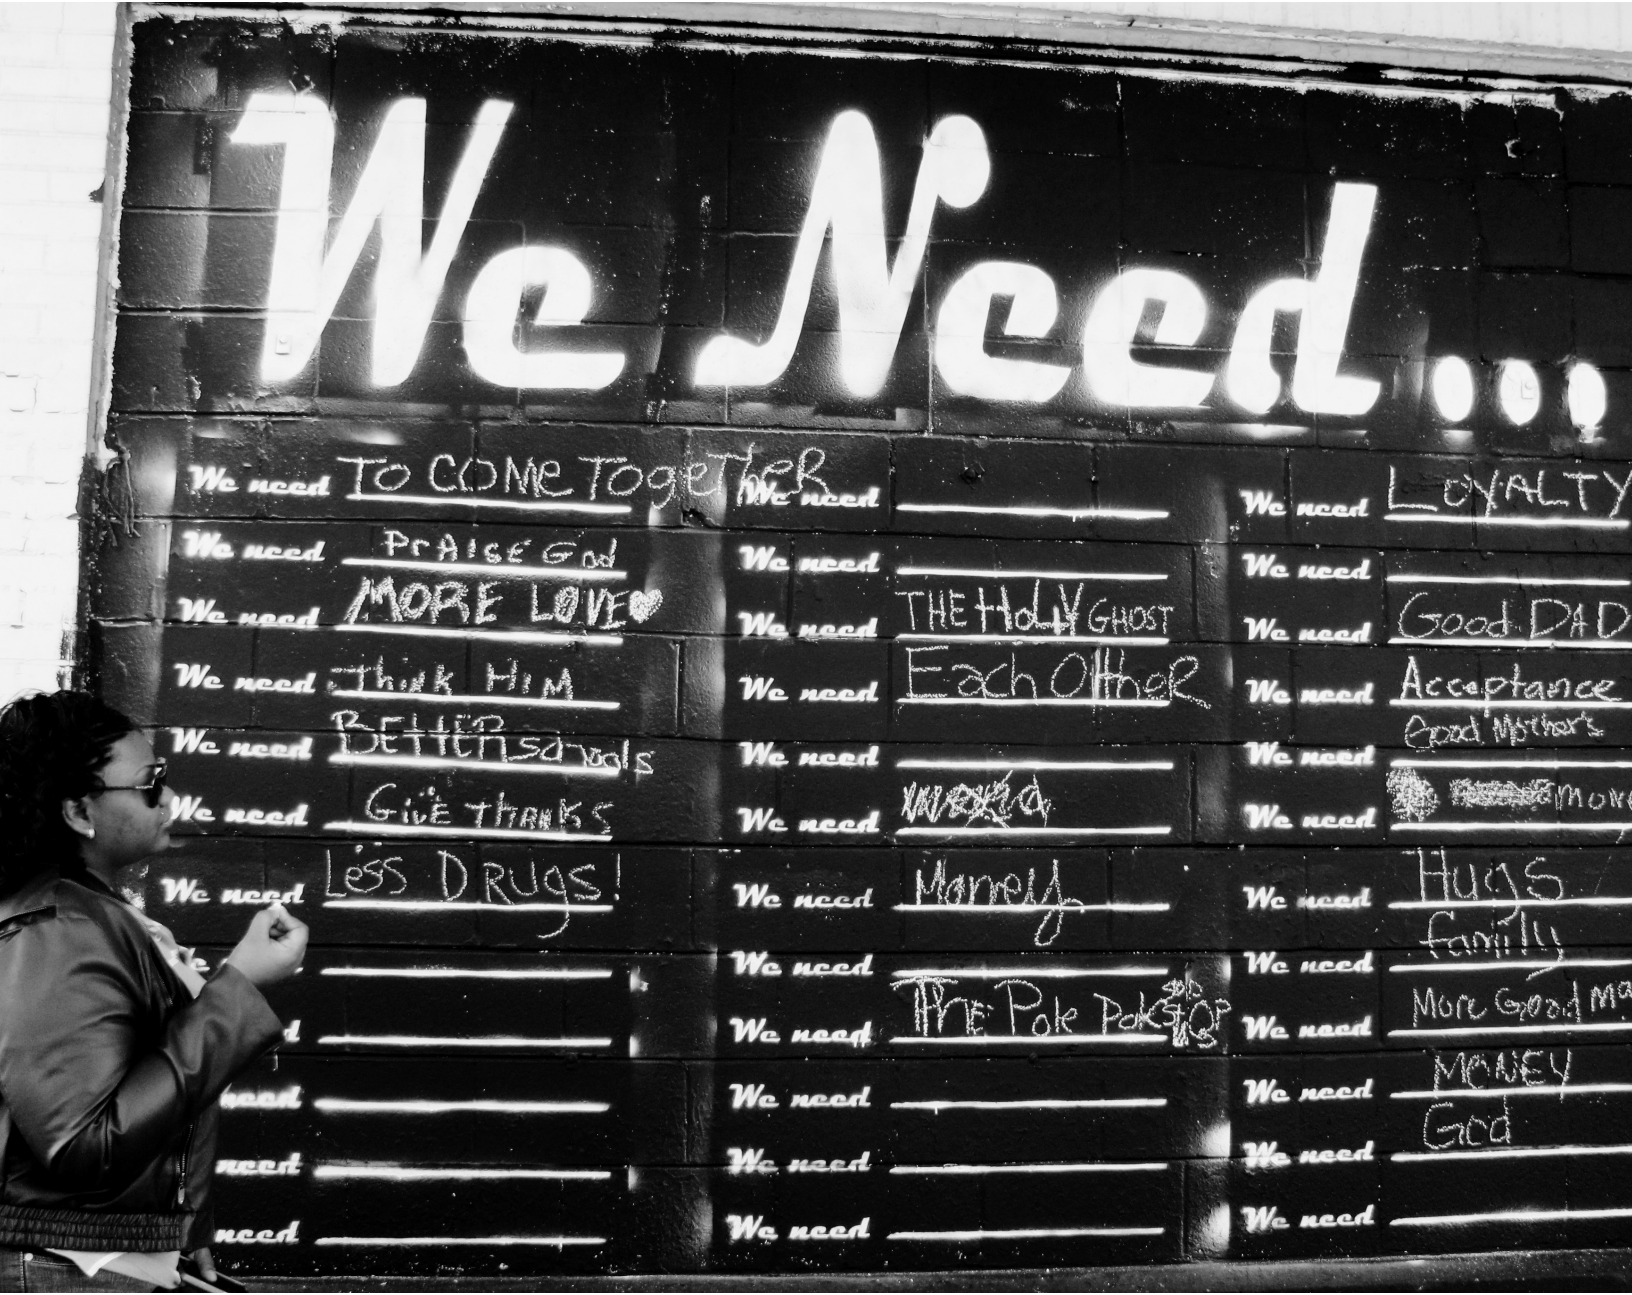 We Need...
We need TO COME TogeTheR
We need PrAISE God
We need MORE LOVE
We need think HIM
We need BETTER schools
We need GiVE thANKS
We need Less DRugs!
need
need
need
We need
We need
We need THE HoLY GHOST
We need Each OtheR
We need
We need
We need Money
We need
We need The Pole Pole STOP
We need
We need
We need
We need LoYALTY
We need
We need Good DAD
We need Acceptance
We need Good Mother's
We need
We need Hugs
We need family
We need More Good
We need MONEY
We need God
We need